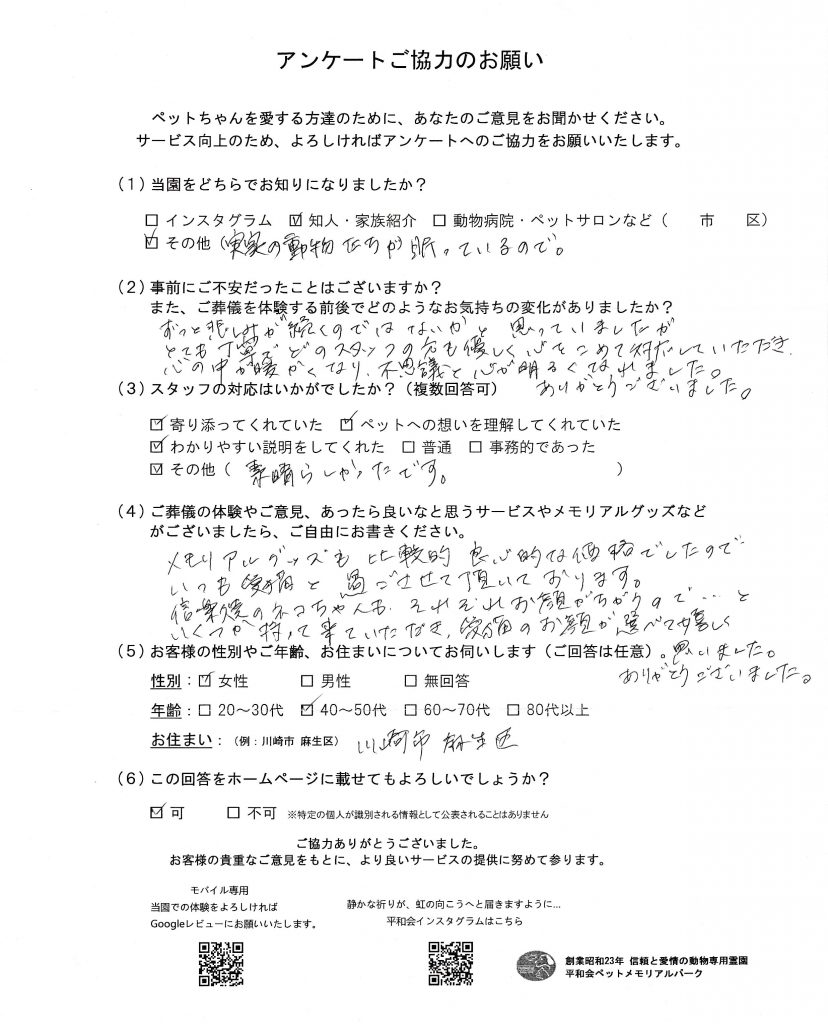 アンケートご協力のお願い
ペットちゃんを愛する方達のために、あなたのご意見をお聞かせください。
サービス向上のため、よろしければアンケートへのご協力をお願いいたします。
（1）当園をどちらでお知りになりましたか？
□ インスタグラム ☑ 知人・家族紹介 □ 動物病院・ペットサロンなど（ 市 区）
☑ その他（実家の動物たちが眠っているので。
（2）事前にご不安だったことはございますか？
また、ご葬儀を体験する前後でどのようなお気持ちの変化がありましたか？
ずっと悲しみが続くのではないかと思っていましたが
とても丁寧でどのスタッフの方も優しく心をこめて対応していただき、
心の中が暖かくなり、不思議と心が明るくなれました。
ありがとうございました。
（3）スタッフの対応はいかがでしたか？（複数回答可）
☑ 寄り添ってくれていた ☑ ペットへの想いを理解してくれていた
☑ わかりやすい説明をしてくれた □ 普通 □ 事務的であった
☑ その他（ 素晴らしかったです。 ）
（4）ご葬儀の体験やご意見、あったら良いなと思うサービスやメモリアルグッズなど
がございましたら、ご自由にお書きください。
メモリアルグッズも比較的良心的な価格でしたので
いつも愛猫と過ごさせて頂いております。
信楽焼のネコちゃんも、それぞれお顔がちがうので…と
いくつか持って来ていただき、愛猫のお顔が選べて嬉しく
思いました。
ありがとうございました。
（5）お客様の性別やご年齢、お住まいについてお伺いします（ご回答は任意）。
性別：☑ 女性 □ 男性 □ 無回答
年齢：□ 20～30代 ☑ 40～50代 □ 60～70代 □ 80代以上
お住まい：（例：川崎市 麻生区） 川崎市 麻生区
（6）この回答をホームページに載せてもよろしいでしょうか？
☑ 可 □ 不可 ※特定の個人が識別される情報として公表されることはありません
ご協力ありがとうございました。
お客様の貴重なご意見をもとに、より良いサービスの提供に努めて参ります。
モバイル専用
当園での体験をよろしければ
Googleレビューにお願いいたします。
静かな祈りが、虹の向こうへと届きますように…
平和会インスタグラムはこちら
創業昭和23年 信頼と愛情の動物専用霊園
平和会ペットメモリアルパーク